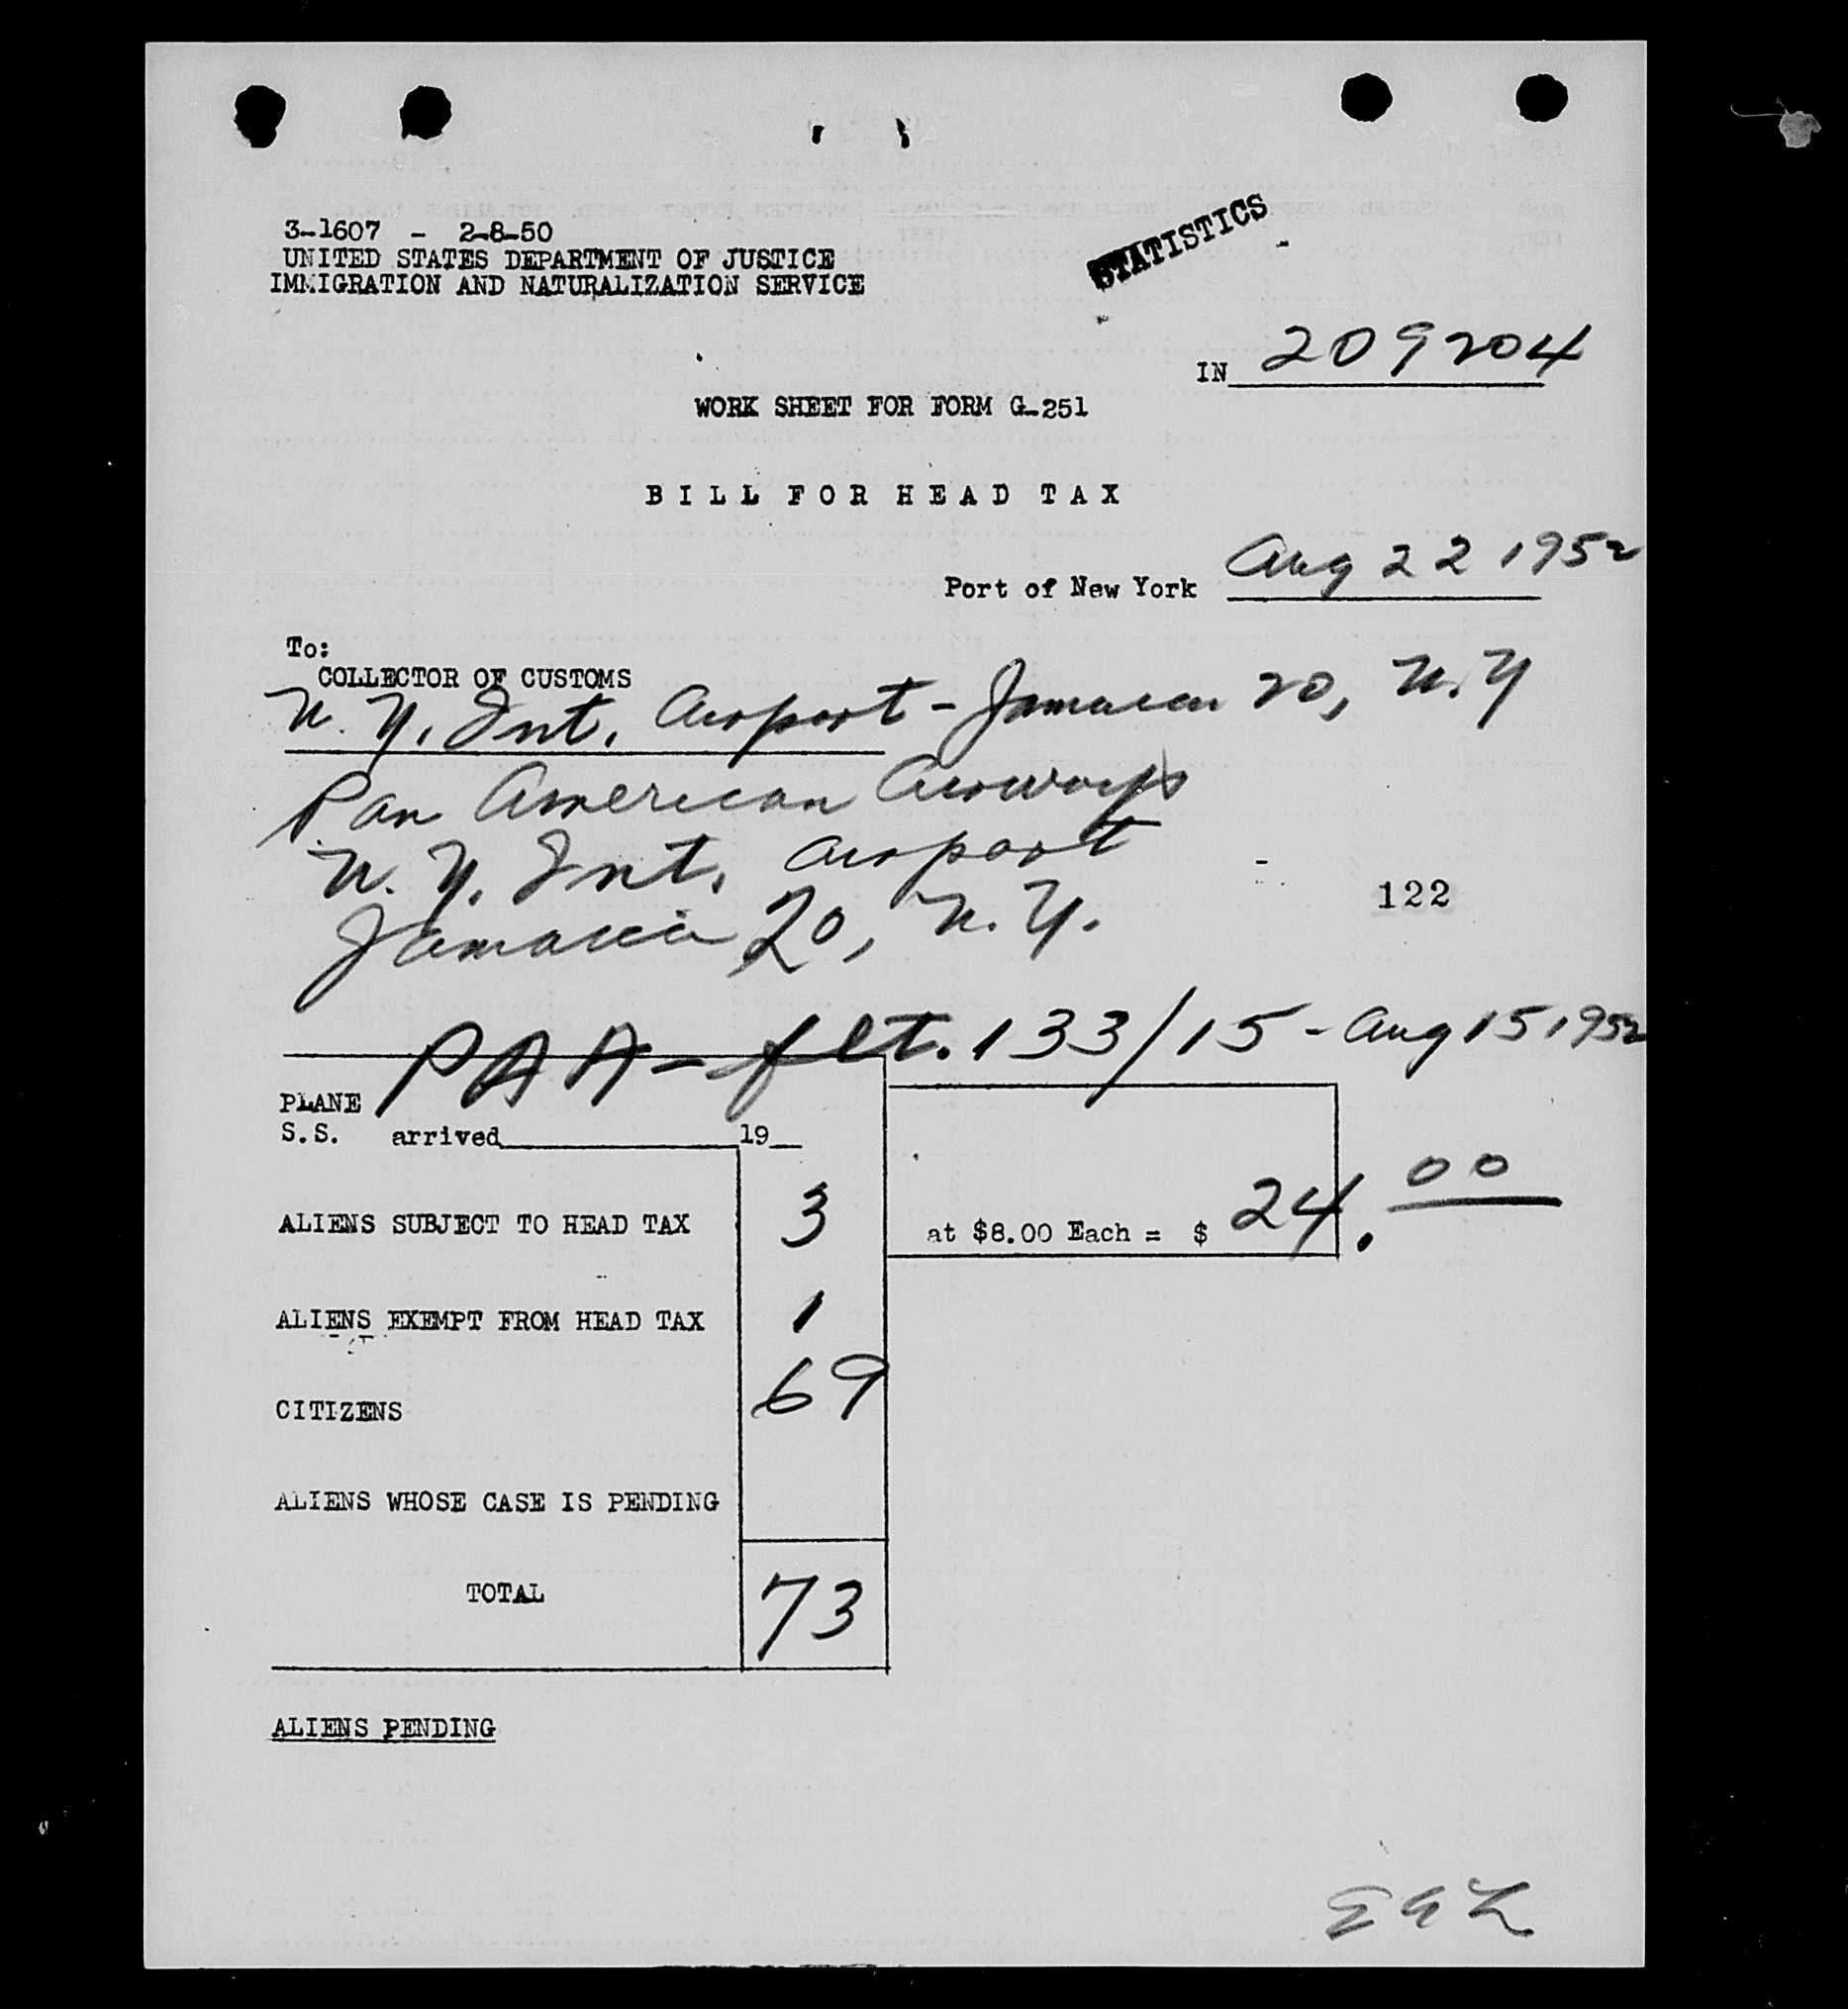 3-1607 - 2-8-50
UNITED STATES DEPARTMENT OF JUSTICE
IMMIGRATION AND NATURALIZATION SERVICE
STATISTICS
IN 209204
WORK SHEET FOR FORM G-251
BILL FOR HEAD TAX
Port of New York Aug 22 1952
To:
COLLECTOR OF CUSTOMS
N. Y. Int. Airport - Jamaica 20, N.Y
Pan American Airways
N. Y. Int. Airport
Jamaica 20, N.Y.
122
PAA - flt. 133/15 - Aug 15 1952
PLANE
S.S. arrived 19
ALIENS SUBJECT TO HEAD TAX 3 at $8.00 Each = $ 24.00
ALIENS EXEMPT FROM HEAD TAX 1
CITIZENS 69
ALIENS WHOSE CASE IS PENDING
TOTAL 73
ALIENS PENDING